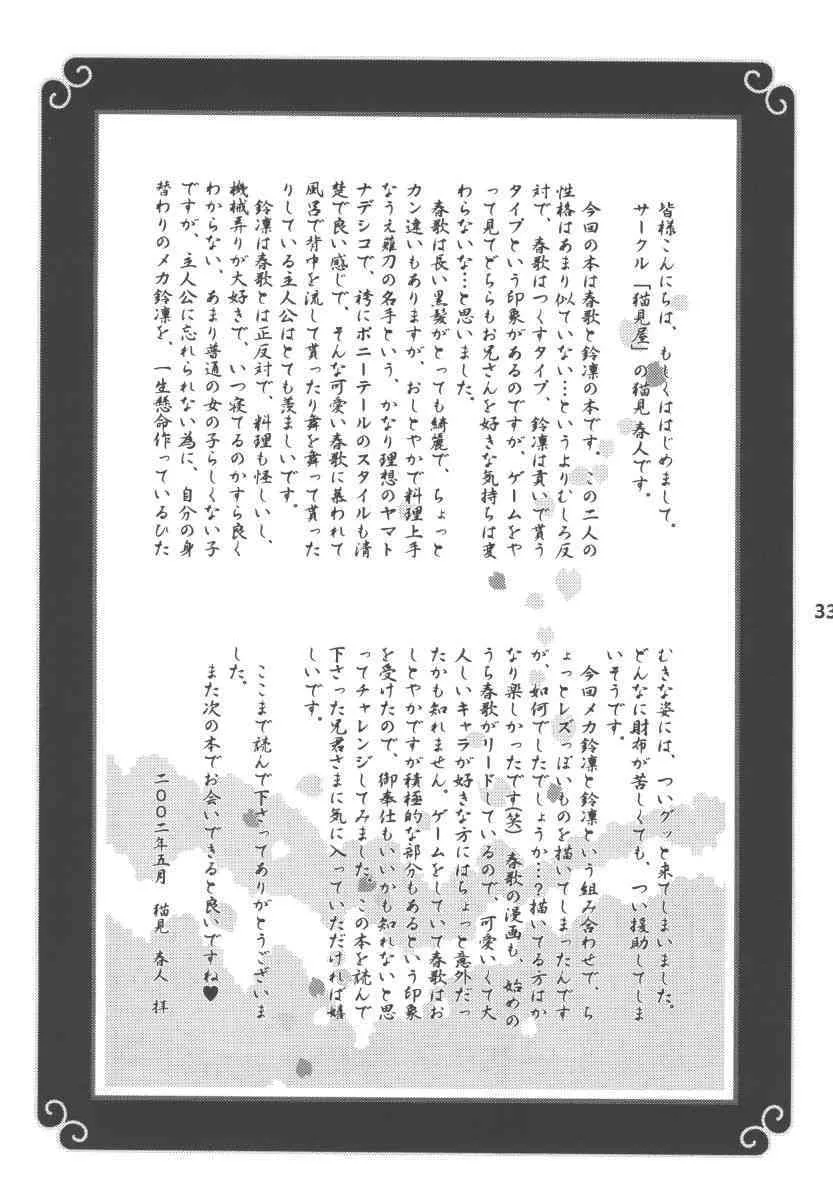 皆様こんにちは、もしくははじめまして。
サークル「猫見屋」の猫見 春人です。
今回の本は春歌と鈴凛の本です。この二人の
性格はあまり似ていない…というよりむしろ反
対で、春歌はつくすタイプ、鈴凛は貢いで貰う
タイプという印象があるのですが、ゲームをや
って見てどちらもお兄さんを好きな気持ちは変
わらないな…と思いました。
春歌は長い黒髪がとっても綺麗で、ちょっと
カン違いもありますが、おしとやかで料理上手
なうえ薙刀の名手という、かなり理想のヤマト
ナデシコで、袴にポニーテールのスタイルも清
楚で良い感じで、そんな可愛い春歌に慕われて
風呂で背中を流して貰ったり舞を舞って貰った
りしている主人公はとても羨ましいです。
鈴凛は春歌とは正反対で、料理も怪しいし、
機械弄りが大好きで、いつ寝てるのかすら良く
わからない、あまり普通の女の子らしくない子
ですが、主人公に忘れられない為に、自分の身
替わりのメカ鈴凛を、一生懸命作っているひた
むきな姿には、ついグッと来てしまいました。
どんなに財布が苦しくても、つい援助してしま
いそうです。
今回メカ鈴凛と鈴凛という組み合わせで、ち
ょっとレズっぽいものを描いてしまったんです
が、如何でしたでしょうか…?描いてる方はか
なり楽しかったです(笑) 春歌の漫画も、始めの
うち春歌がリードしているので、可愛いくて大
人しいキャラが好きな方にはちょっと意外だっ
たかも知れません。ゲームをしていて春歌はお
しとやかですが積極的な部分もあるという印象
を受けたので、御奉仕もいいかも知れないと思
ってチャレンジしてみました。この本を読んで
下さった兄君さまに気に入っていただければ嬉
しいです。
ここまで読んで下さってありがとうございま
した。
また次の本でお会いできると良いですね♥
二〇〇二年五月 猫見 春人 拝
33